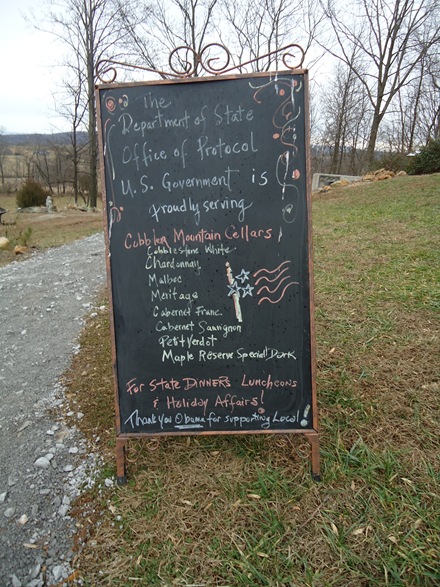 The
Department of State
Office of Protocol
U.S. Government is
proudly serving
Cobbler Mountain Cellars
Cobblestone White
Chardonnay
Malbec
Meritage
Cabernet Franc
Cabernet Sauvignon
Petit Verdot
Maple Reserve Special Dark
For State Dinners Luncheons
& Holiday Affairs!
Thank You Obama for supporting Local!